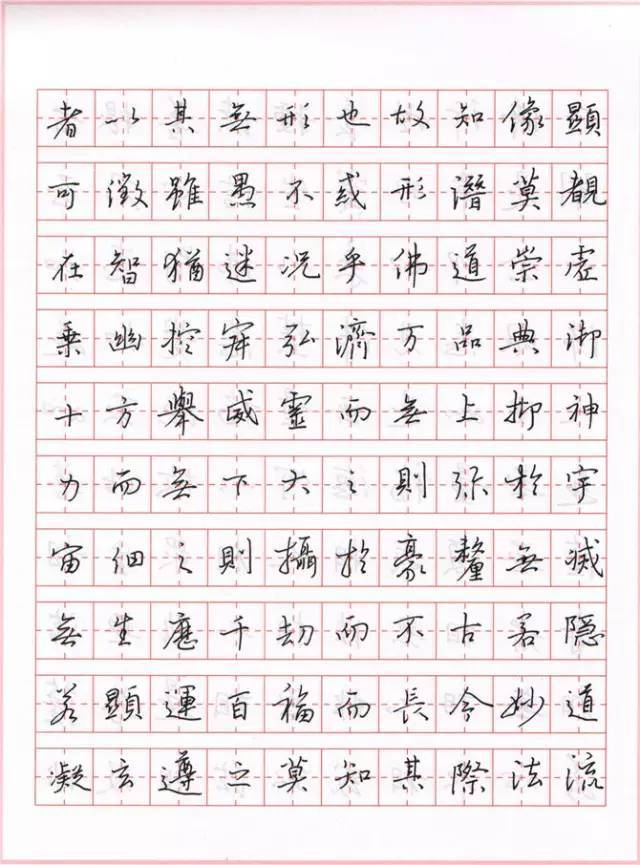 者以其無形也故知像顯
可徵雖愚不或形潛莫覩
在智猶迷況乎佛道崇虛
乗幽控寂弘濟万品典御
十方舉威靈而無上抑神
力而無下大之則弥於宇
宙細之則攝於豪釐無滅
無生歷千劫而不古若隱
若顯運百福而長今妙道
凝玄遵之莫知其際法流